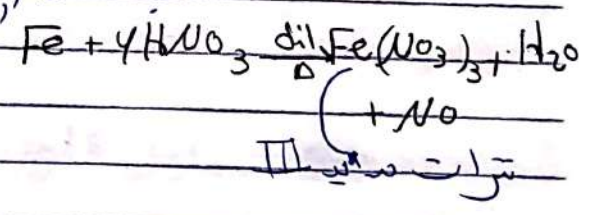 Fe + 4HNO3 dil Δ Fe(NO3)3 + H2O
+ NO
نترات حديد III